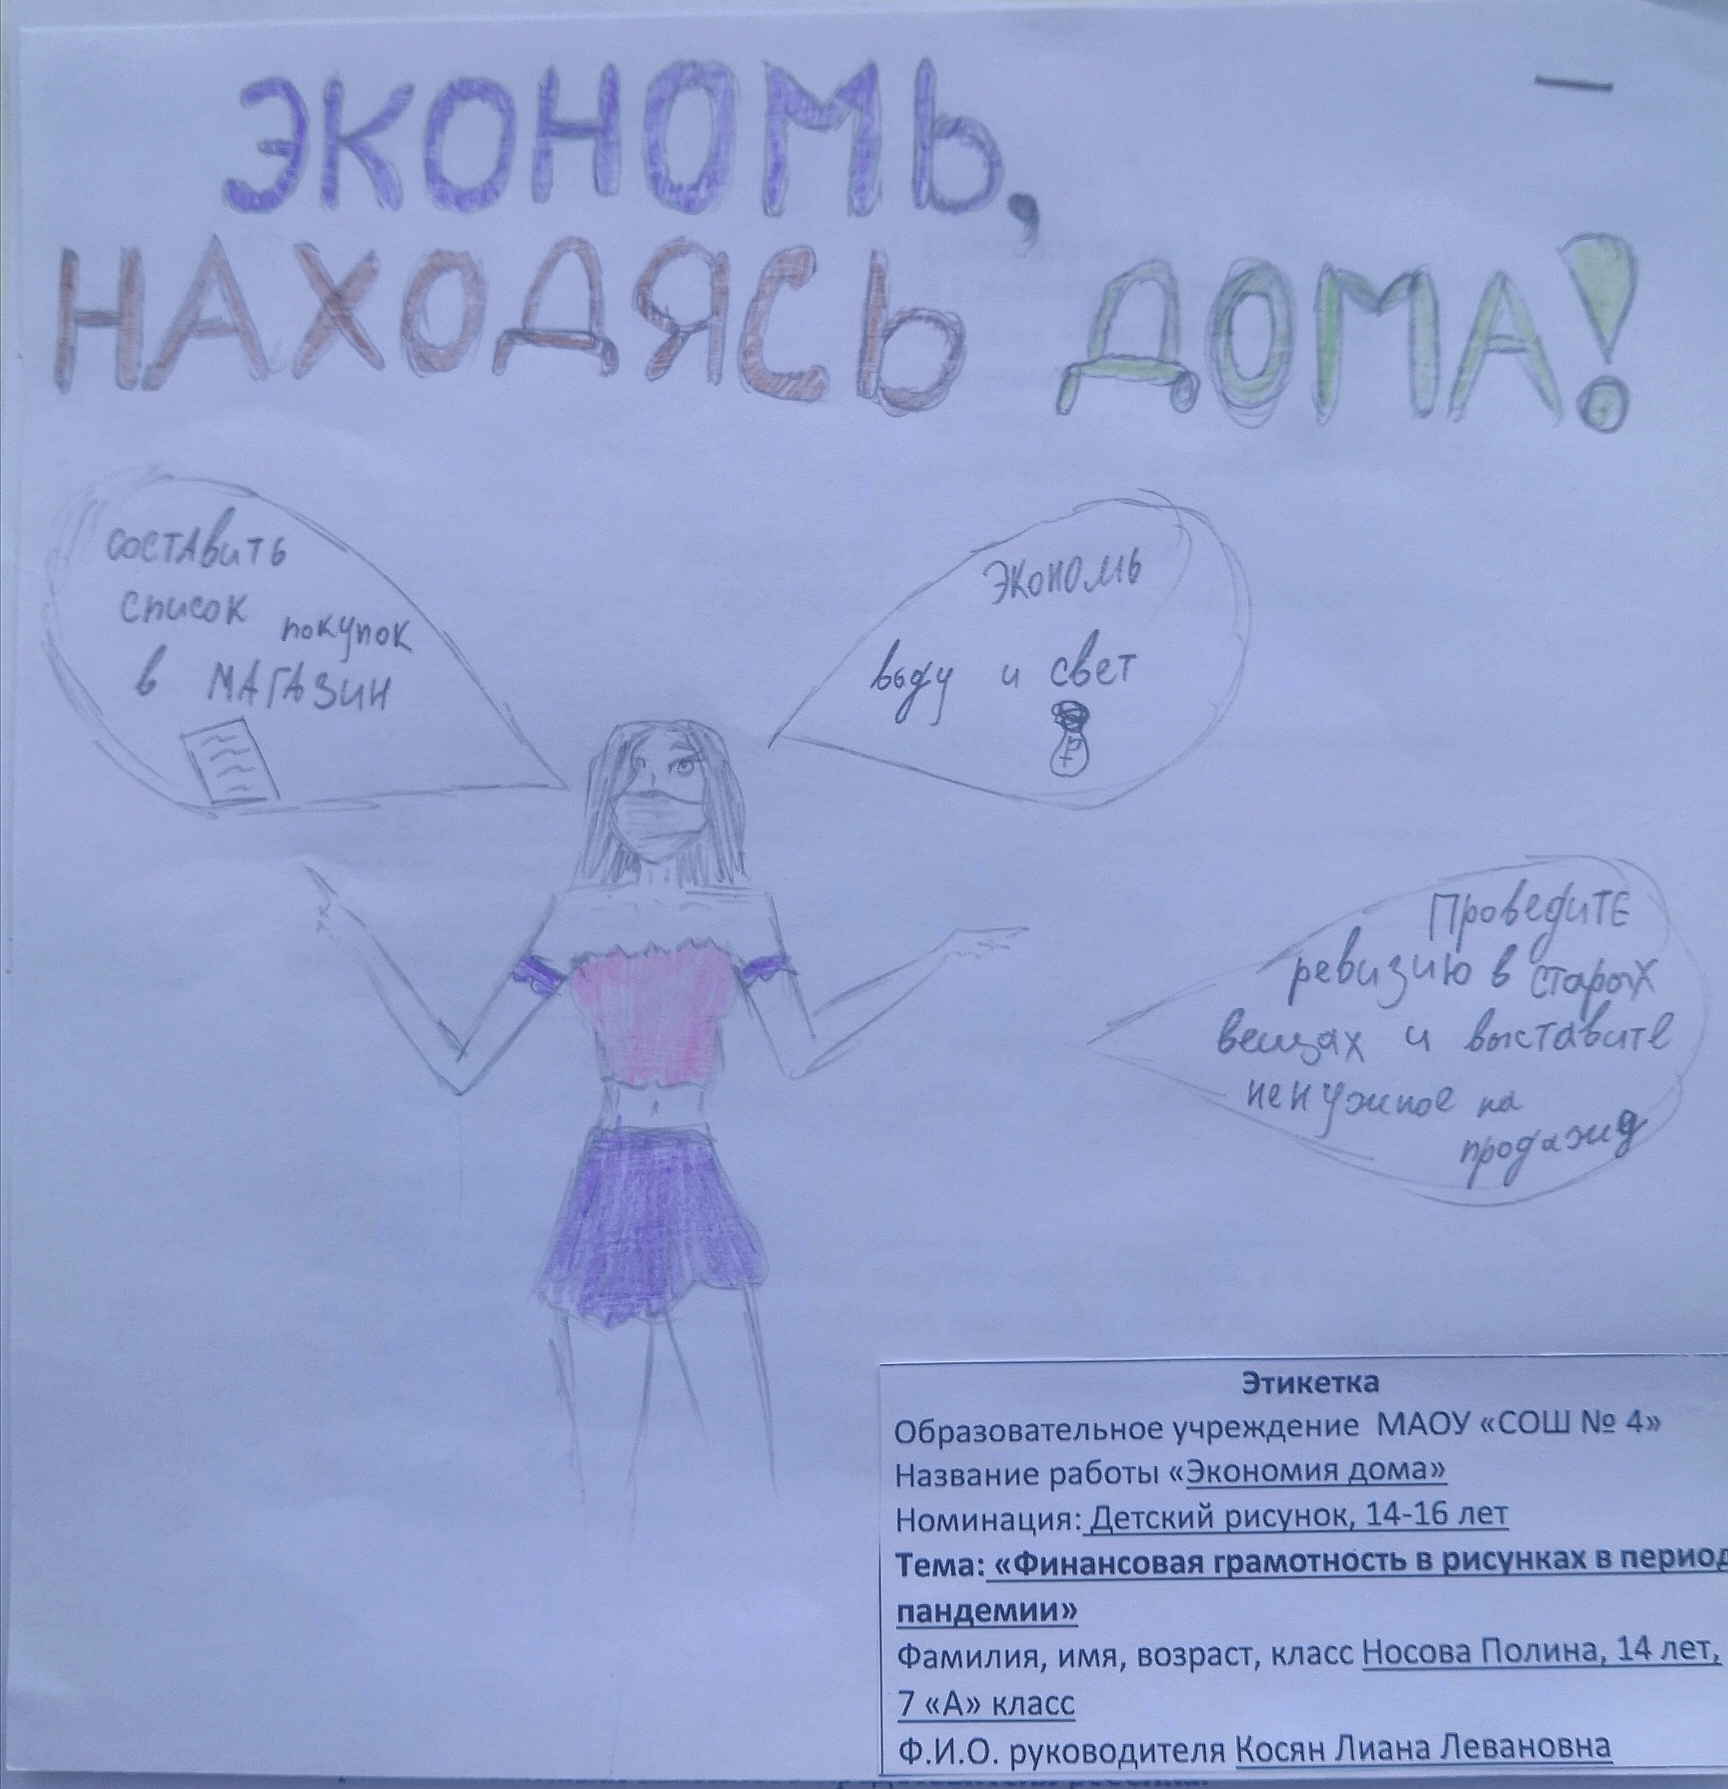 ЭКОНОМЬ,
НАХОДЯСЬ ДОМА!
составить
список покупок
в МАГАЗИН
Экономь
воду и свет
₽
Проведите
ревизию в старых
вещах и выставите
ненужное на
продажу
Этикетка
Образовательное учреждение МАОУ «СОШ № 4»
Название работы «Экономия дома»
Номинация: Детский рисунок, 14-16 лет
Тема: «Финансовая грамотность в рисунках в период
пандемии»
Фамилия, имя, возраст, класс Носова Полина, 14 лет,
7 «А» класс
Ф.И.О. руководителя Косян Лиана Левановна